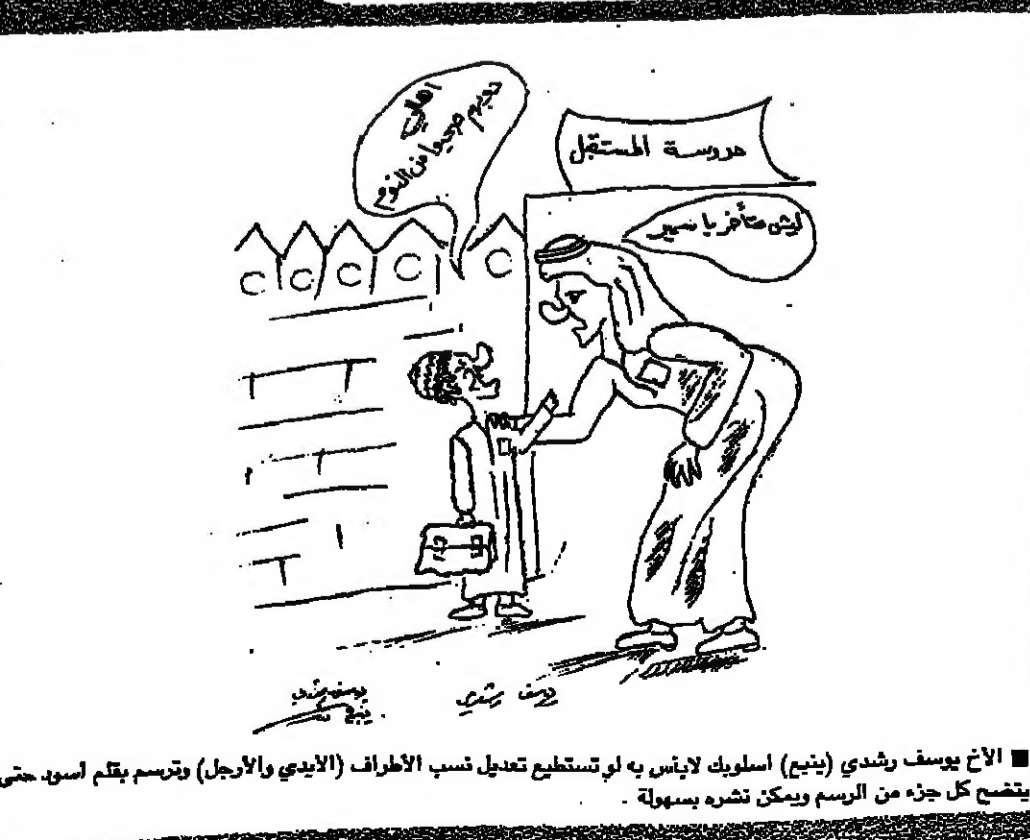 مدرسة المستقبل
ليش متأخر يا سمير
اهلي
دوبهم صحيوا من النوم
يوسف رشدي
ينبع
■ الأخ يوسف رشدي (ينبع) اسلوبك لابأس به لو تستطيع تعديل نسب الأطراف (الايدي والأرجل) وترسم بقلم اسود حتى
يتضح كل جزء من الرسم ويمكن نشره بسهولة .